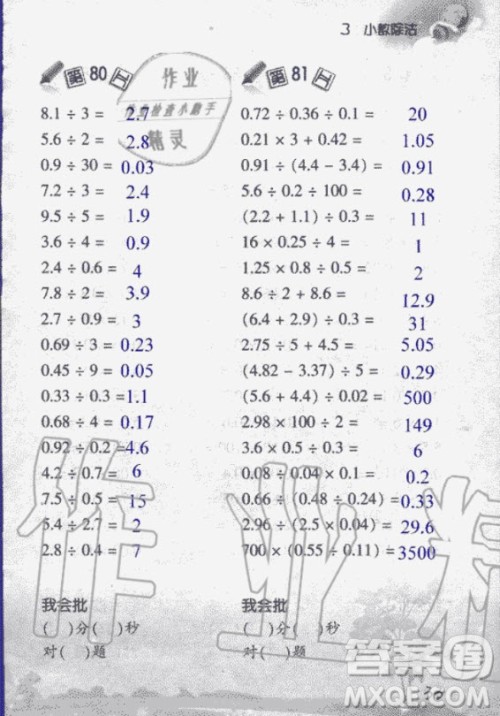 3 小数除法
第80
作业
检查小助手
精灵
8.1 ÷ 3 = 2.7
5.6 ÷ 2 = 2.8
0.9 ÷ 30 = 0.03
7.2 ÷ 3 = 2.4
9.5 ÷ 5 = 1.9
3.6 ÷ 4 = 0.9
2.4 ÷ 0.6 = 4
7.8 ÷ 2 = 3.9
2.7 ÷ 0.9 = 3
0.69 ÷ 3 = 0.23
0.45 ÷ 9 = 0.05
0.33 ÷ 0.3 = 1.1
0.68 ÷ 4 = 0.17
0.92 ÷ 0.2 = 4.6
4.2 ÷ 0.7 = 6
7.5 ÷ 0.5 = 15
5.4 ÷ 2.7 = 2
2.8 ÷ 0.4 = 7
我会批
( )分( )秒
对( )题
第81
0.72 ÷ 0.36 ÷ 0.1 = 20
0.21 × 3 + 0.42 = 1.05
0.91 ÷ (4.4 - 3.4) = 0.91
5.6 ÷ 0.2 ÷ 100 = 0.28
(2.2 + 1.1) ÷ 0.3 = 11
16 × 0.25 ÷ 4 = 1
1.25 × 0.8 ÷ 0.5 = 2
8.6 ÷ 2 + 8.6 = 12.9
(6.4 + 2.9) ÷ 0.3 = 31
2.75 ÷ 5 + 4.5 = 5.05
(4.82 - 3.37) ÷ 5 = 0.29
(5.6 + 4.4) ÷ 0.02 = 500
2.98 × 100 ÷ 2 = 149
3.6 × 0.5 ÷ 0.3 = 6
0.08 ÷ 0.04 × 0.1 = 0.2
0.66 ÷ (0.48 ÷ 0.24) = 0.33
2.96 ÷ (2.5 × 0.04) = 29.6
700 × (0.55 ÷ 0.11) = 3500
我会批
( )分( )秒
对( )题
作业精
答案圈
MXQE.COM